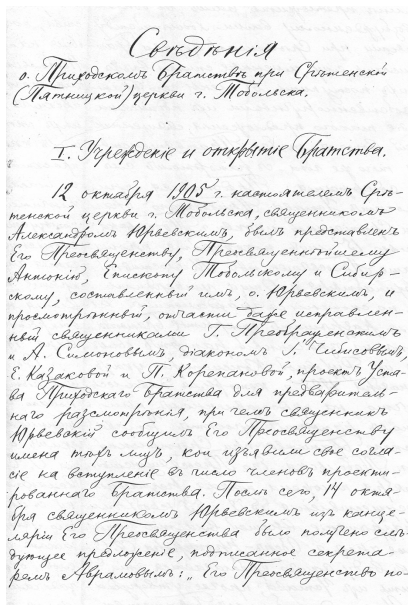 Свѣдѣнія
о Приходскомъ Братствѣ при Срѣтенской
(Пятницкой) церкви г. Тобольска.
I. Учрежденіе и открытіе Братства.
12 октября 1905 г. настоятелемъ Срѣ-
тенской церкви г. Тобольска, священникомъ
Александромъ Юрьевскимъ, былъ представленъ
Его Преосвященству, Преосвященнѣйшему
Антонію, Епископу Тобольскому и Сибир-
скому, составленный имъ, о. Юрьевскимъ, и
просмотрѣнный, отчасти даже исправлен-
ный священниками Г. Преображенскимъ
и А. Симоновымъ, діакономъ І. Чибисовымъ,
Е. Казаковой и П. Корепановой, проектъ Уста-
ва Приходскаго Братства для предваритель-
наго разсмотрѣнія, при чемъ священникъ
Юрьевскій сообщилъ Его Преосвященству
имена тѣхъ лицъ, кои изъявили свое согла-
сіе на вступленіе въ число членовъ проекти-
рованнаго Братства. Послѣ сего, 14 октя-
бря священникомъ Юрьевскимъ изъ канце-
ляріи Его Преосвященства было получено слѣ-
дующее предложеніе, подписанное секрета-
ремъ Авраамовымъ: „Его Преосвященство по-